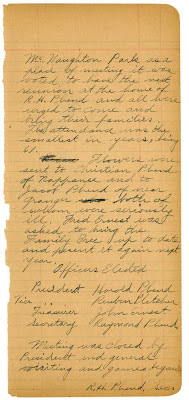 McNaughton Park as a
head of meeting it was
voted to have the next
reunion at the home of
R.H. Pfund and all were
urged to come and
bring their families.
The attendance was the
smallest in years, being
61.
Flowers were
sent to Christian Pfund
of Nappanee and to
Jacob Pfund of near
Granger both of
whom were seriously
ill. Fred Ernest was
asked to bring the
Family Tree up to date
and present it again next
year.
Officers Elected
President Harold Pfund
Vice " Reuben Pletcher
Treasurer John Ernest
Secretary Raymond Pfund
Meeting was closed by
President and general
visiting and games began
R.H. Pfund, Sec.